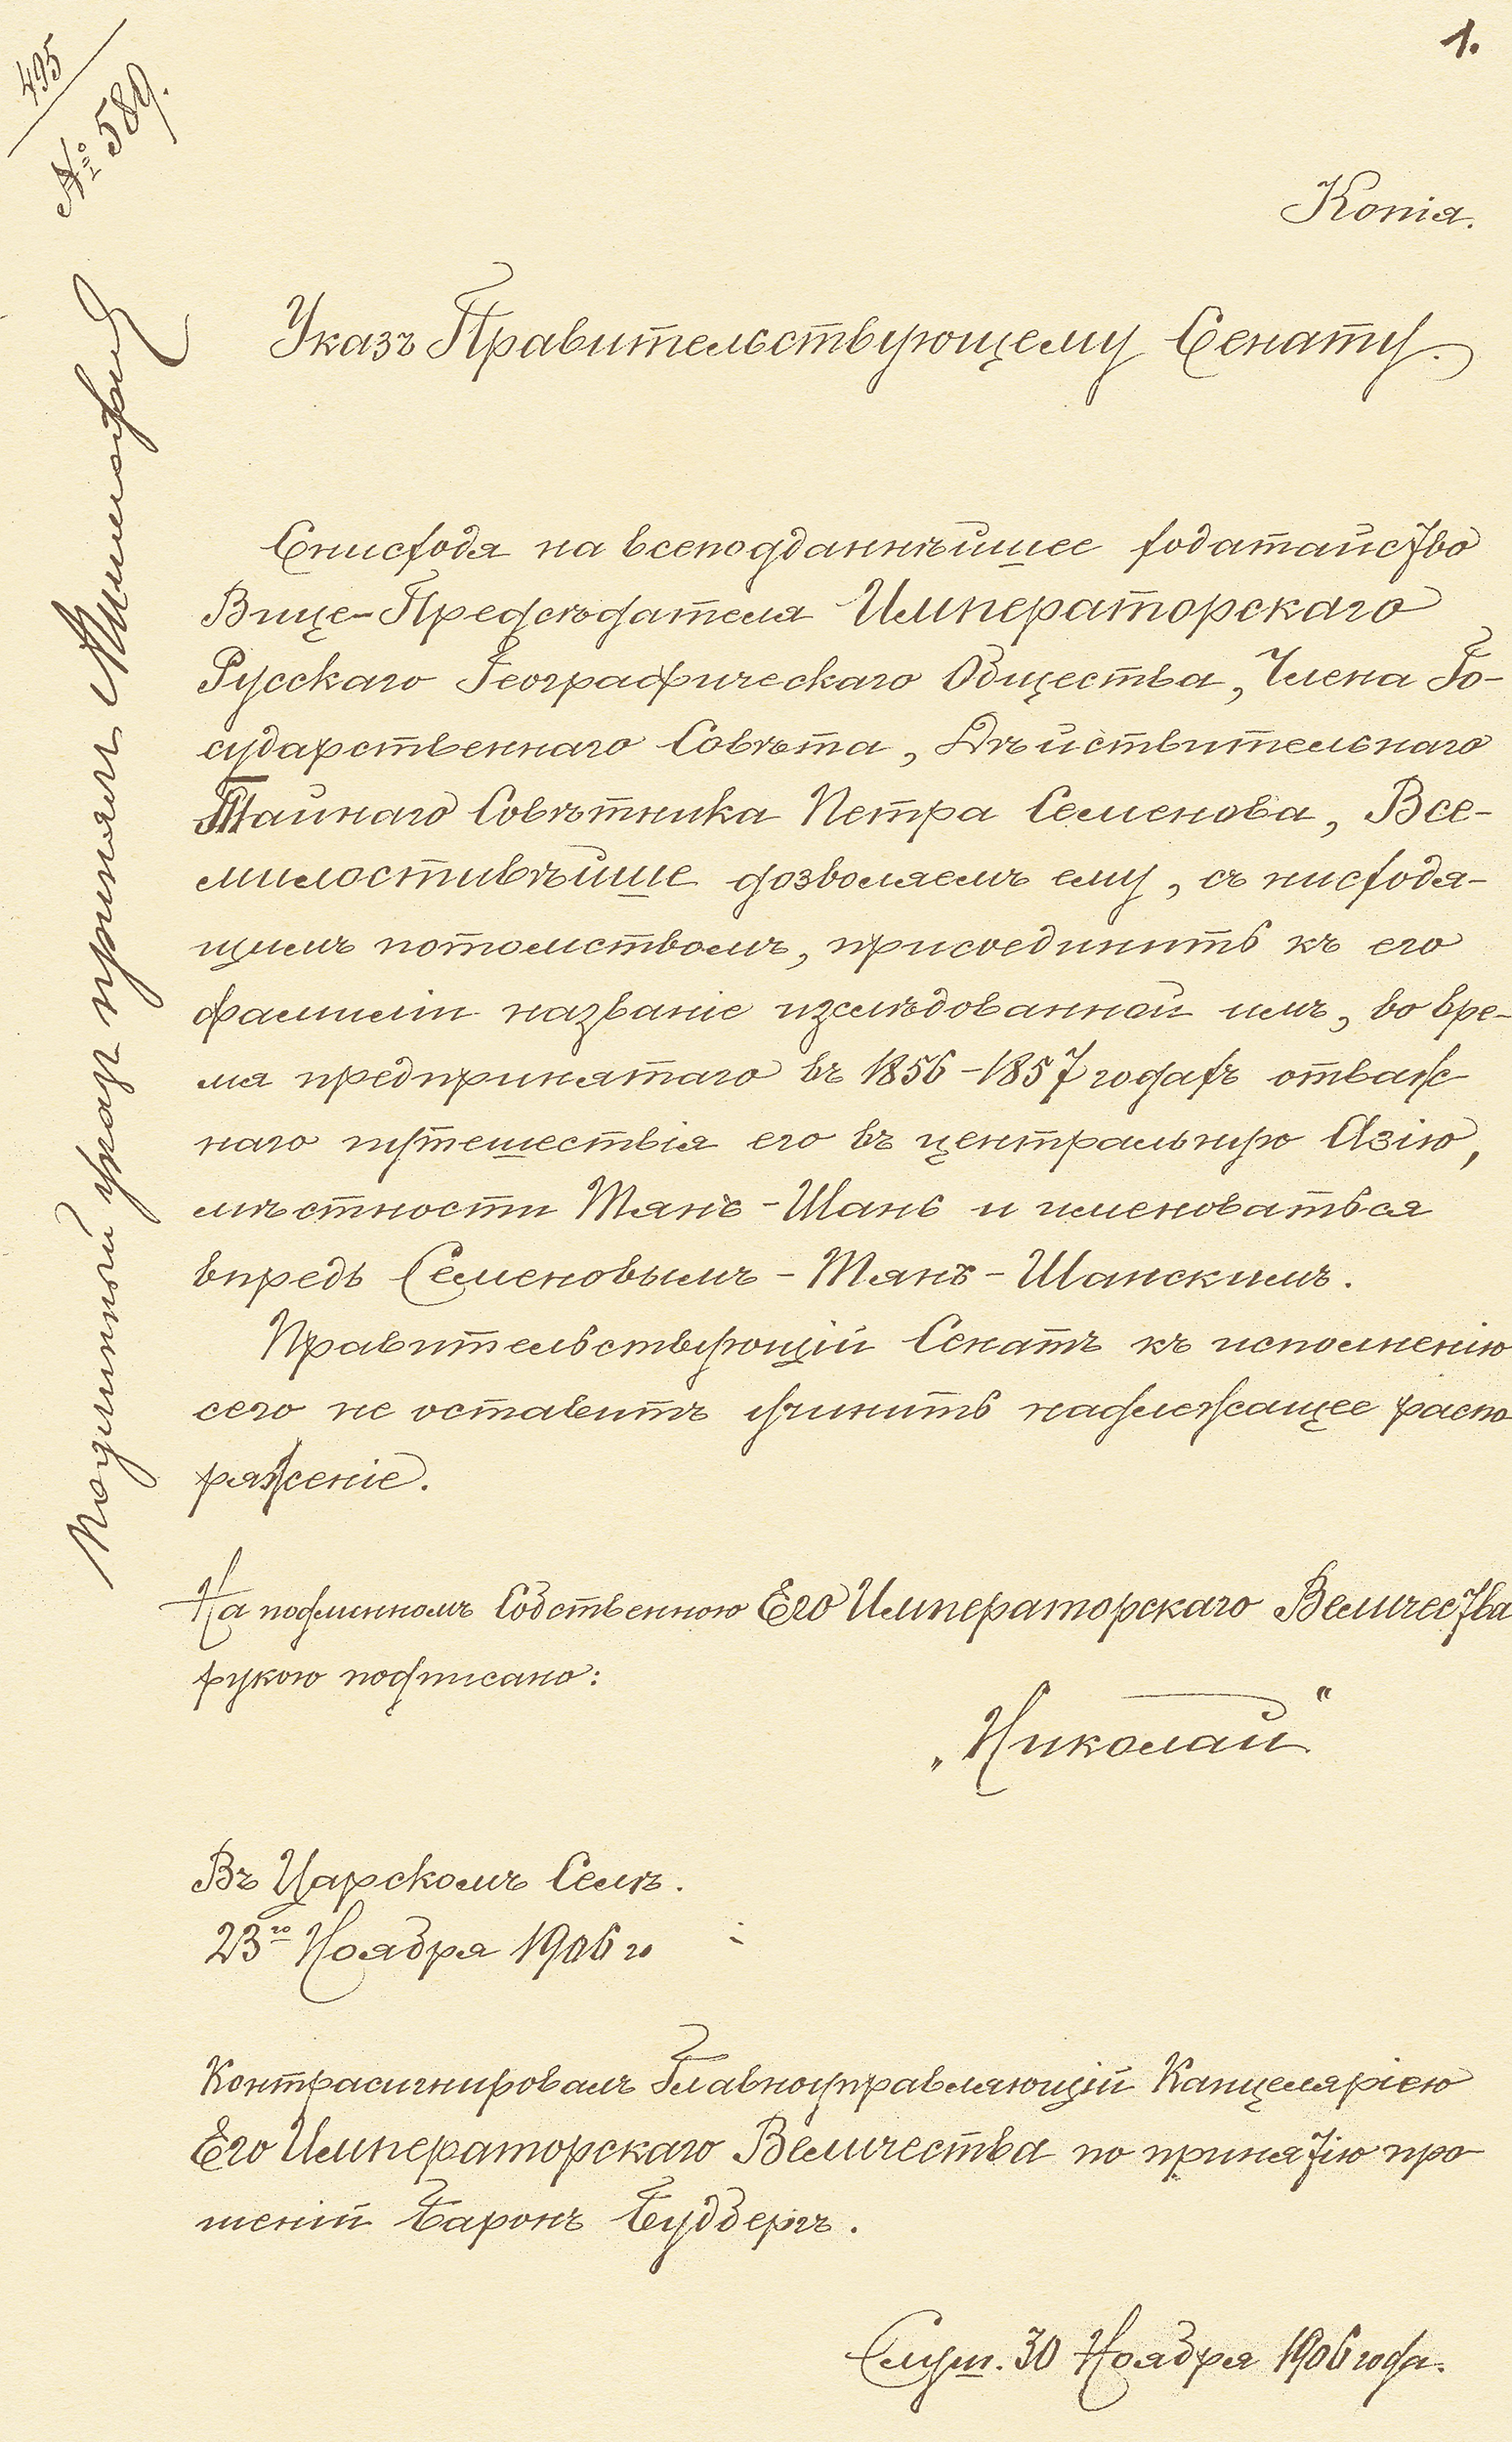 1.
495
№ 589.
Копія.
Указъ Правительствующему Сенату.
Снисходя на всеподданнѣйшее ходатайство
Вице-Предсѣдателя Императорскаго
Русскаго Географическаго Общества, Члена Го-
сударственнаго Совѣта, Дѣйствительнаго
Тайнаго Совѣтника Петра Семенова, Все-
милостивѣйше дозволяемъ ему, съ нисходя-
щимъ потомствомъ, присоединить къ его
фамиліи названіе изслѣдованной имъ, во вре-
мя предпринятаго въ 1856-1857 годахъ отваж
наго путешествія его въ центральную Азію,
мѣстности Тянь-Шань и именоваться
впредь Семеновымъ-Тянъ-Шанскимъ.
Правительствующій Сенатъ къ исполненію
сего не оставитъ учинить надлежащее распо
ряженіе.
На подлинномъ Собственною Его Императорскаго Величества
рукою подписано:
„Николай"
Въ Царскомъ Селѣ.
23го Ноября 1906 го
Контрасигнировалъ Главноуправляющій Канцеляріею
Его Императорскаго Величества по принятію про
шеній Баронъ Будбергъ.
Слуш. 30 Ноября 1906 года.
Подлинный указ принял